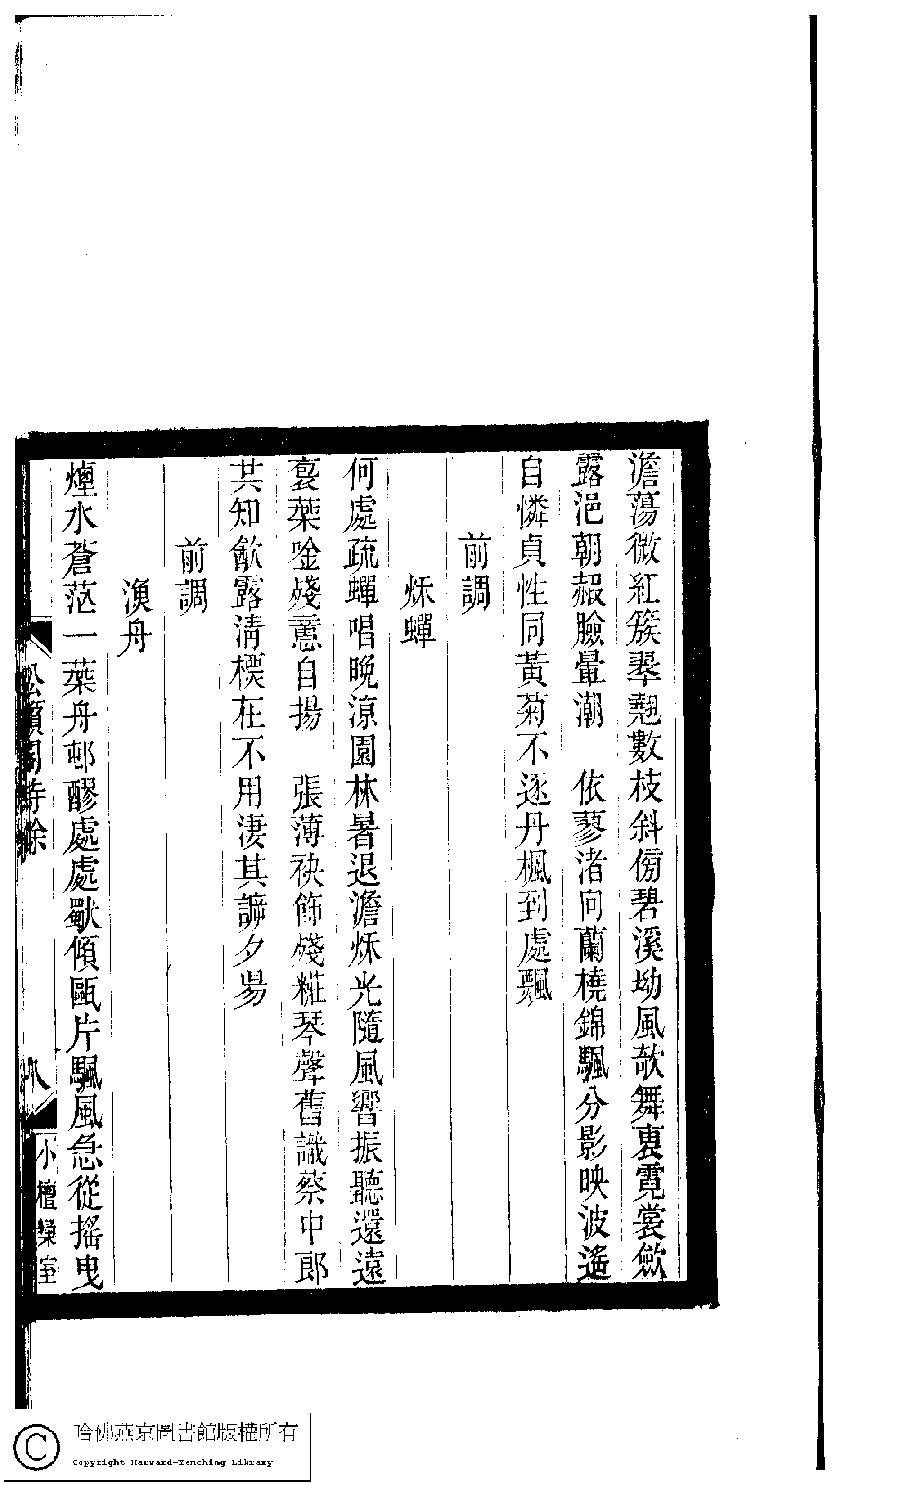 澹蕩微紅簇翠翹數枝斜傍碧溪坳風欹舞裏霓裳歛
露浥朝赮臉暈潮　依蓼渚向蘭橈錦颿分影映波遙
自憐貞性同黃菊不逐丹楓到處飄
前調
秌蟬
何處疏蟬唱晚涼園林暑退澹秌光隨風響振聽還遠
裒葉唫殘蕙自揚　張薄袂飾殘糚琴聲舊識蔡中郎
共知飲露淸標在不用淒其諦夕昜
前調
漁舟
煙水蒼茫一葉舟邨醪處處歜傾甌片颿風急從搖曳
松韻閣詩餘
八
小檀欒室
哈佛燕京圖書館版權所有
Copyright Harvard-Yenching Library